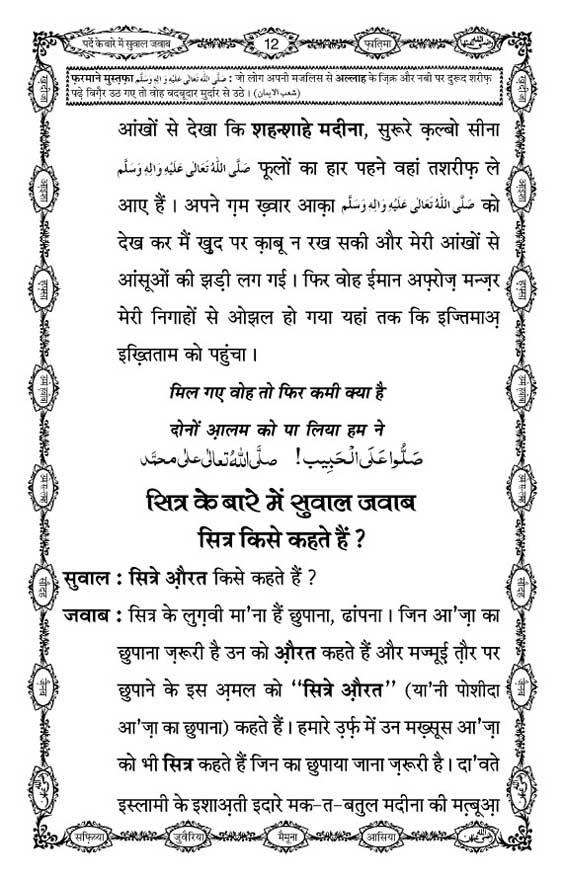 पर्दे के बारे में सुवाल जवाब
12
फ़ातिमा
फ़रमाने मुस्तफ़ा صَلَّى اللّٰهُ تَعَالٰى عَلَيْهِ وَاٰلِهٖ وَسَلَّم : जो लोग अपनी मजलिस से अल्लाह के ज़िक्र और नबी पर दुरूद शरीफ़
पढ़े बिग़ैर उठ गए तो वोह बदबूदार मुर्दार से उठे । (شعب الایمان)
आंखों से देखा कि शहन्शाहे मदीना, सुरूरे क़ल्बो सीना
صَلَّى اللّٰهُ تَعَالٰى عَلَيْهِ وَاٰلِهٖ وَسَلَّم फूलों का हार पहने वहां तशरीफ़ ले
आए हैं । अपने ग़म ख़्वार आक़ा صَلَّى اللّٰهُ تَعَالٰى عَلَيْهِ وَاٰلِهٖ وَسَلَّم को
देख कर मैं खुद पर क़ाबू न रख सकी और मेरी आंखों से
आंसूओं की झड़ी लग गई । फिर वोह ईमान अफ़्रोज़ मन्ज़र
मेरी निगाहों से ओझल हो गया यहां तक कि इज्तिमाअ़
इख़्तिताम को पहुंचा ।
मिल गए वोह तो फिर कमी क्या है
दोनों आ़लम को पा लिया हम ने
صَلُّوْا عَلَى الْحَبِيْب! صلَّى اللهُ تعالٰى على محتَّد
सित्र के बारे में सुवाल जवाब
सित्र किसे कहते हैं ?
सुवाल : सित्रे औ़रत किसे कहते हैं ?
जवाब : सित्र के लुग़वी मा'ना हैं छुपाना, ढांपना । जिन आ'ज़ा का
छुपाना ज़रूरी है उन को औ़रत कहते हैं और मज्मूई़ तौ़र पर
छुपाने के इस अ़मल को "सित्रे औ़रत" (या'नी पोशीदा
आ'ज़ा का छुपाना) कहते हैं । हमारे उ़र्फ़ में उन मख़्सूस आ'ज़ा
को भी सित्र कहते हैं जिन का छुपाया जाना ज़रूरी है । दा'वते
इस्लामी के इशाअ़ती इदारे मक-त-बतुल मदीना की मत़्बूआ़
सफ़िय्या
जुवैरिया
मैमूना
आसिया